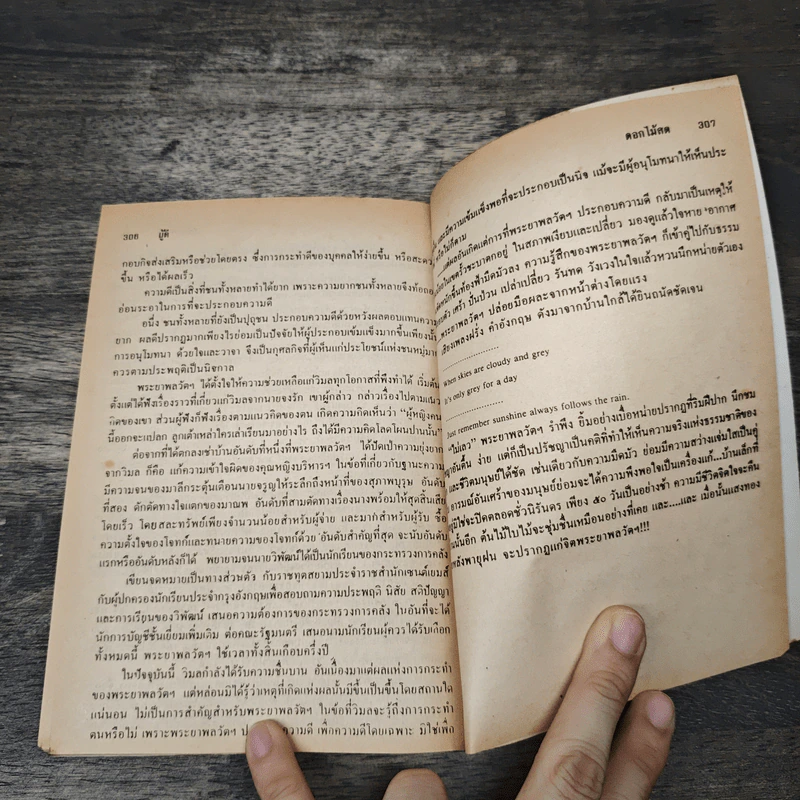 306 ผู้ดี
กอบกิจส่งเสริมหรือช่วยโดยตรง ซึ่งการกระทำดีของบุคคลให้ง่ายขึ้น หรือสะดวก
ขึ้น หรือได้ผลเร็ว
ความดีเป็นสิ่งที่ชนทั้งหลายทำได้ยาก เพราะความยากชนทั้งหลายจึงท้อถอย
อ่อนระอาในการที่จะประกอบความดี
อนึ่ง ชนทั้งหลายที่ยังเป็นปุถุชน ประกอบความดีด้วยหวังผลตอบแทนความ
ยาก ผลดีปรากฏมากเพียงไรย่อมเป็นปัจจัยให้ผู้ประกอบเข้มแข็งมากขึ้นเพียงนั้น
การอนุโมทนา ด้วยใจและวาจา จึงเป็นกุศลกิจที่ผู้เห็นแก่ประโยชน์แห่งชนหมู่มาก
ควรตามประพฤติเป็นนิจกาล
พระยาพลวัตฯ ได้ตั้งใจให้ความช่วยเหลือแก่วิมลทุกโอกาสที่พึงทำได้ เริ่มต้น
ตั้งแต่ได้ฟังเรื่องราวที่เกี่ยวแก่วิมลจากนายจงรัก เขาผู้กล่าว กล่าวเรื่องไปตามแนว
คิดของเขา ส่วนผู้ฟังก็ฟังเรื่องตามแนวคิดของตน เกิดความคิดเห็นว่า "ผู้หญิงคน
นี้ออกจะแปลก ลูกเต้าเหล่าใครเล่าเรียนมาอย่างไร ถึงได้มีความคิดโลดโผนปานนั้น"
ต่อจากที่ได้ตกลงเช่าบ้านอันดับที่หนึ่งที่พระยาพลวัตฯ ได้ปัดเป่าความยุ่งยาก
จากวิมล ก็คือ แก้ความเข้าใจผิดของคุณหญิงบริหารฯ ในข้อที่เกี่ยวกับฐานะความ
มีความจนของมาลีกระตุ้นเตือนนายจรูญให้ระลึกถึงหน้าที่ของสุภาพบุรุษ อันดับ
ที่สอง ดักตัดทางใจแตกของมาณพ อันดับที่สามตัดทางเรื่องนางพร้อมให้สุดสิ้นเสีย
โดยเร็ว โดยสละทรัพย์เพียงจำนวนน้อยสำหรับผู้จ่าย และมากสำหรับผู้รับ ซื้อ
ความตั้งใจของโจทก์และทนายความของโจทก์ด้วย อันดับสำคัญที่สุด จะนับอันดับ
แรกหรืออันดับหลังก็ได้ พยายามจนนายวิพัฒน์ได้เป็นนักเรียนของกระทรวงการคลัง
เขียนจดหมายเป็นทางส่วนตัว กับราชทูตสยามประจำราชสำนักเซนต์เยมส์
กับผู้ปกครองนักเรียนประจำกรุงอังกฤษเพื่อสอบถามความประพฤติ นิสัย สติปัญญา
และการเรียนของวิพัฒน์ เสนอความต้องการของกระทรวงการคลัง ในอันที่จะได้
นักการบัญชีชั้นเยี่ยมเพิ่มเติม ต่อคณะรัฐมนตรี เสนอนามนักเรียนผู้ควรได้รับเลือก
ทั้งหมดนี้ พระยาพลวัตฯ ใช้เวลาทั้งสิ้นเกือบครึ่งปี
ในปัจจุบันนี้ วิมลกำลังได้รับความชื่นบาน อันเนื่องมาแต่ผลแห่งการกระทำ
ของพระยาพลวัตฯ แต่หล่อนมิได้รู้ว่าเหตุที่เกิดแห่งผลนั้นมีขึ้นเป็นขึ้นโดยสถานใด
แน่นอน ไม่เป็นการสำคัญสำหรับพระยาพลวัตฯ ในข้อที่วิมลจะรู้ถึงการกระทำ
ตนหรือไม่ เพราะพระยาพลวัตฯ ความดี เพื่อความดีโดยเฉพาะ มิใช่เพื่อ
ดอกไม้สด 307
และมีความเข้มแข็งพอที่จะประกอบเป็นนิจ แม้จะมีผู้อนุโมทนาให้เห็นประ
หรือไม่ก็ตาม
แต่ผลอันเกิดแต่การที่พระยาพลวัตฯ ประกอบความดี กลับมาเป็นเหตุให้
ในเขตรั้วชะบาตกอยู่ ในสภาพเงียบและเปลี่ยว มองดูแล้วใจหาย 'อากาศ
หนักขึ้นท้องฟ้ามืดมัวลง ความรู้สึกของพระยาพลวัตฯ ก็เข้าคู่ไปกับธรรม
เศร้า ปั่นป่วน เปล่าเปลี่ยว รันทด วังเวงในใจแล้วหวนนึกหน่ายตัวเอง
พระยาพลวัตฯ ปล่อยมือผละจากหน้าต่างโดยแรง
เสียงเพลงฝรั่ง คำอังกฤษ ดังมาจากบ้านใกล้ได้ยินถนัดชัดเจน
...............
When skies are cloudy and grey
It's only grey for a day
...............
Just remember sunshine always follows the rain.
"ไม่เลว" พระยาพลวัตฯ รำพึง ยิ้มอย่างเบื่อหน่ายปรากฏที่ริมฝีปาก นึกชม
อันตื้น ง่าย แต่ก็เป็นปรัชญาเป็นคติที่ทำให้เห็นความจริงแห่งธรรมชาติของ
และชีวิตมนุษย์ได้ชัด เช่นเดียวกับความมืดมัว ย่อมมีความสว่างแจ่มใสเป็นคู่
อารมณ์อันเศร้าของมนุษย์ย่อมจะได้ความพึงพอใจเป็นเครื่องแก้...บ้านเล็กที่
จะปิดตลอดชั่วนิรันดร เพียง ๕๐ วันเป็นอย่างช้า ความมีชีวิตจิตใจจะคืน
นั้นอีก ต้นไม้ใบไม้จะชุ่มชื่นเหมือนอย่างที่เคย และ....และ เมื่อนั้นแสงทอง
หลังพายุฝน จะปรากฏแก่จิตพระยาพลวัตฯ!!!